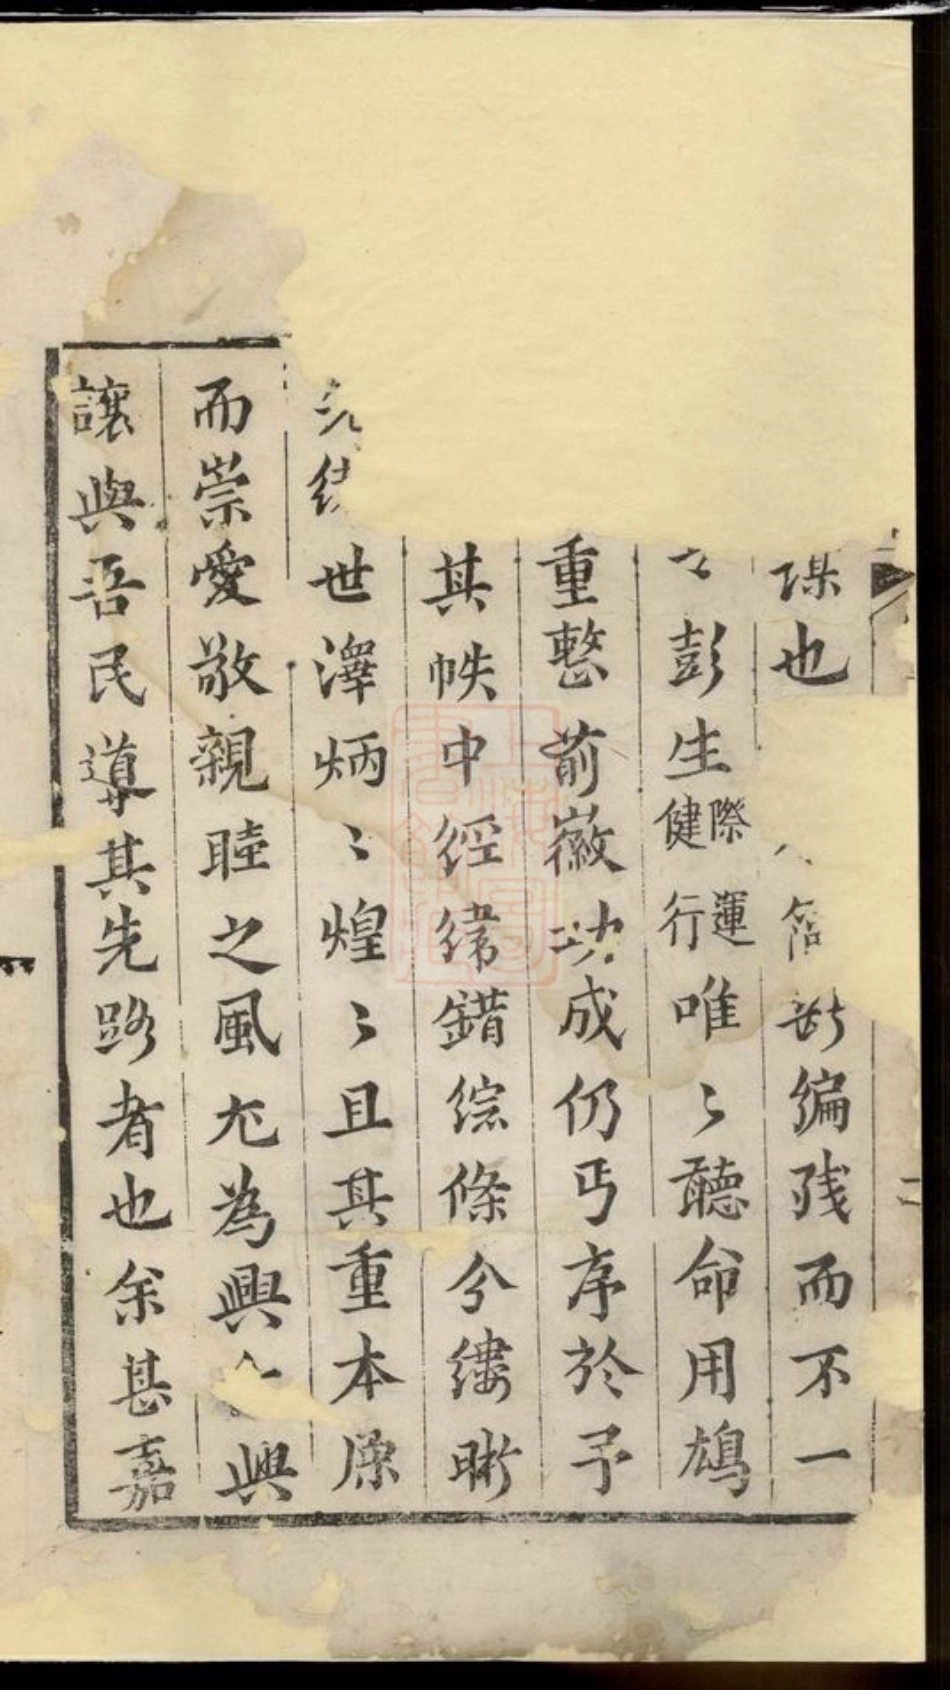 也編残而不一
彭生健行際運唯〻聽命用鳩
重整前徽功成仍丐序於予
其帙中經緯錯綜條分縷晰
世澤炳〻煌〻且其重本源
而崇愛敬親睦之風尤為興興
讓與吾民導其先路者也余甚嘉